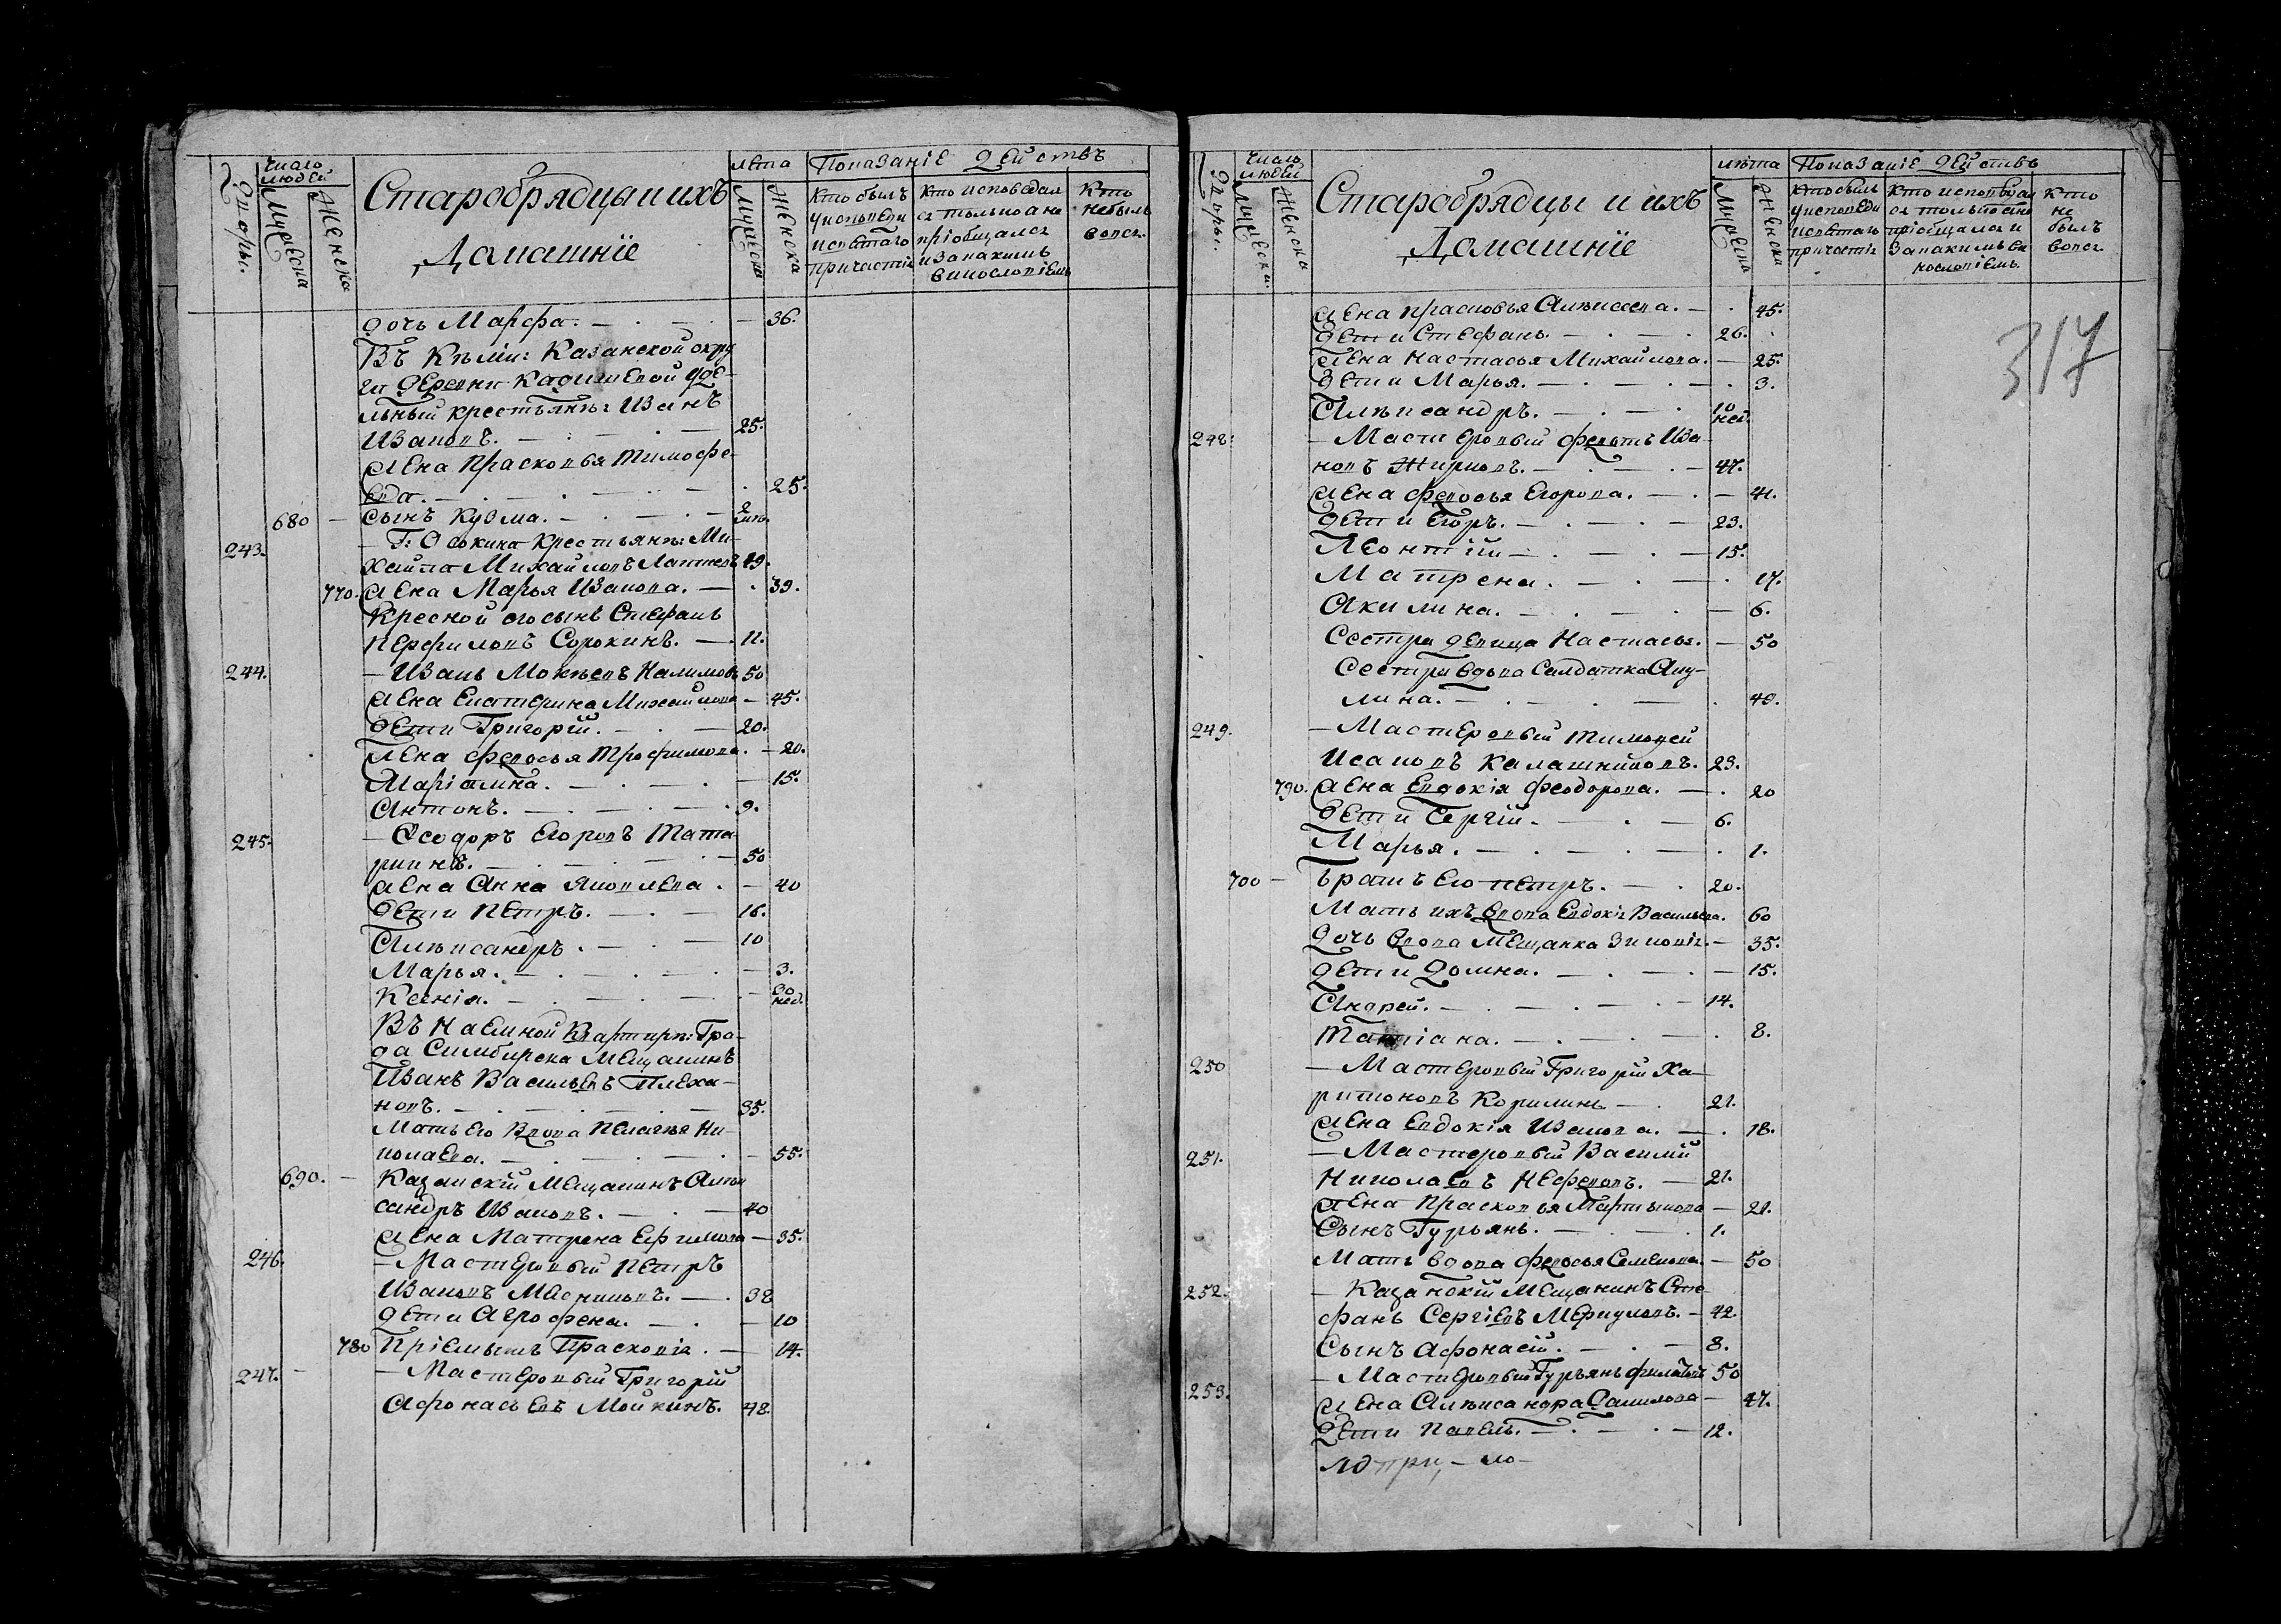 Дворы.
Число людей
Мужеска
Женска
Старобрядцы и ихъ
Домашнїе
лѣта
Мужеска
Женска
Показанїе действъ
Кто былъ
у исповеди
и святаго
причастія
Кто исповедал
ся только а не
прїобщался
и за какимъ
винословїемъ
Кто
небылъ
вовся.
дочь Марфа. 36.
Въ Кѣліи: Казанской окру
ги деревни Кадышевой Уде-
льный крестьянин: Иванъ
Ивановъ. 25.
жена Прасковья Тимофе-
ева. 25.
680 сынъ Кузма.
243. Г: Осокина крестьянин: Ми-
хайла Михайловъ Лаптевъ 49.
770. жена Марья Иванова. 39.
Кресной его сынъ Стефанъ
Перфиловъ Сорокинъ. 11.
244. Иванъ Мокѣевъ Налимовъ 50
жена Екатерина Михайлова 45.
дети Григорїй. 20.
жена Федосья Трофимова. 20.
Марїамна. 15.
Антонъ. 9.
245. Феодоръ Егоровъ Тата-
ринъ. 50
жена Анна Яковлева. 40
дети Петръ. 16.
Алѣксандръ. 10
Марья. 3.
Ксенїя. 30 нед.
Въ Наемной Квартирѣ: Гра-
да Симбирска Мещанинъ
Иванъ Васильевъ Плеха-
новъ. 35.
Мать его Вдова Пелагѣя Ни-
колаева. 55.
690. Казанскїй Мещанинъ Алѣк
сандръ Ивановъ. 40
жена Матрена Ефимова 35.
246. Мастеровый Петръ
Ивановъ Масниковъ. 38
дети Агрофена. 10
780 Прїемышъ Прасковія. 14.
247. Мастеровый Григорїй
Афонасьевъ Мойкинъ. 48.
Дворы.
Число людей
Мужески.
Женска
Старобрядцы и ихъ
Домашнїе
лѣта
Мужеска
Женска
Показанїе действъ
Кто былъ
у исповеди
и святаго
причастія
Кто исповедал
ся только а не
прїобщался и
за какимъ ви
нословїемъ.
Кто
не
былъ
вовся
317
жена Прасковья Алѣксеева. 45.
дети Стефанъ. 26.
жена Настасья Михайлова. 25.
дети Марья. 3.
Алѣксандръ. 10 нед.
248. Мастеровый Федотъ Ива-
новъ Жирновъ. 47.
жена Федосья Егорова. 41.
дети Егоръ. 23.
Леонтїй 15.
Матрена. 17.
Акилина. 6.
Сестра девица Настасья. 50
Сестра вдова Салдатка Аку-
лина. 40.
249. Мастеровый Тимофей
Исаковъ Калашниковъ. 23.
790. жена Евдокія Феодорова. 20
дети Сергїй. 6.
Марья. 1.
700 Братъ его Петръ. 20.
Мать ихъ вдова Евдокія Васильева. 60
Дочь вдова Мещанка Зиновія. 35.
дети Домна. 15.
Андрей. 14.
Татїана. 8.
250 Мастеровый Григорїй Ха-
ритоновъ Корилинъ 21.
жена Евдокія Иванова. 18.
251. Мастеровый Василїй
Николаевъ Нефедовъ. 21.
жена Прасковья Мартынова 21.
Сынъ Гурьянъ. 1.
Мать вдова Федосья Семенова. 50
252. Казанскїй Мещанинъ Сте-
фанъ Сергїевъ Меркуловъ. 42.
Сынъ Афонасїй. 8.
253. Мастеровый Гурьянъ Филатовъ 50
жена Алѣксандра Данилова 47.
Дети Павелъ. 12.